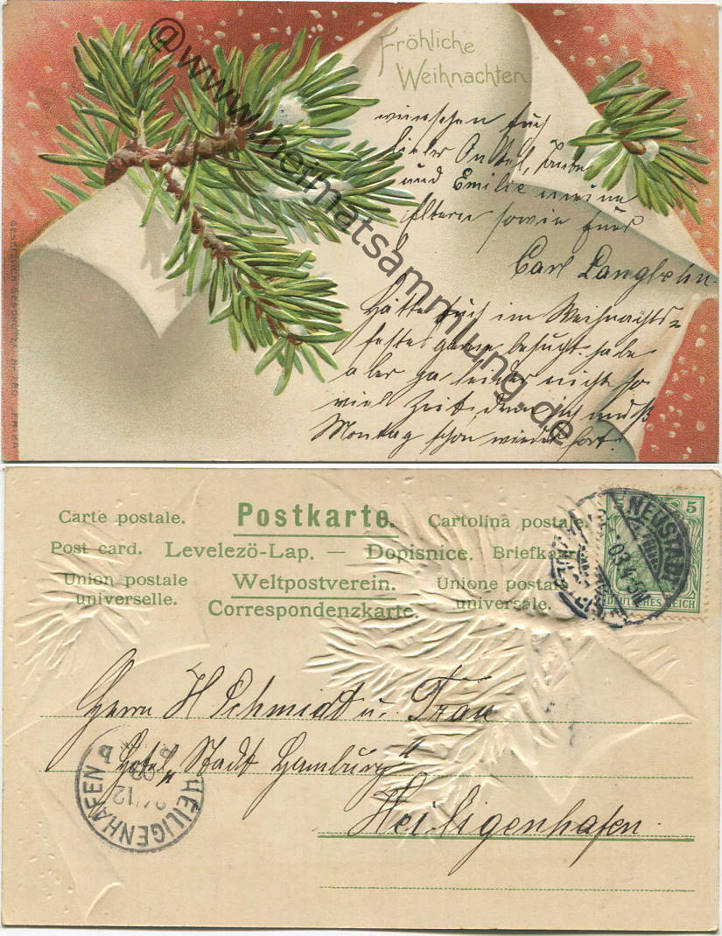 Fröhliche
Weihnachten
wünschen Euch
lieber Onkel, Tante
und Emilie meine
Eltern sowie Euer
Carl Langbehn.
Hätte Euch im Weihnachts=
feste gerne besucht habe
aber ja leider nicht so
viel Zeit, denn ich muß
Montag schon wieder fort.
@www.heimatsammlung.de
Carte postale. Postkarte. Cartolina postale.
Post card. Levelezö-Lap. — Dopisnice. Briefkaart.
Union postale Weltpostverein. Unione postale
universelle. Correspondenzkarte. universale.
5
DEUTSCHES REICH
NEUSTADT
03.4-5N
Herrn H Schmidt u. Frau
Hotel „Stadt Hamburg“
Heiligenhafen.
HEILIGENHAFEN